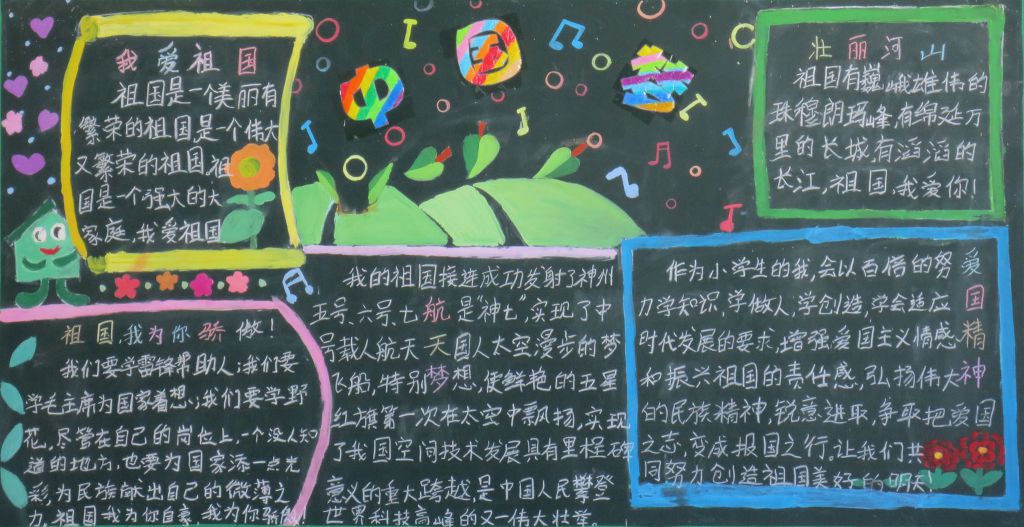 中
国
我爱祖国
祖国是一个美丽有
繁荣的祖国是一个伟大
又繁荣的祖国,祖
国是一个强大的大
家庭,我爱祖国
壮丽河山
祖国有巍峨雄伟的
珠穆朗玛峰,有绵延万
里的长城,有滔滔的
长江,祖国,我爱你!
祖国,我为你骄傲!
我们要学雷锋帮助人;我们要
学毛主席为国家着想;我们要学野
花,尽管在自己的岗位上,一个没人知
道的地方,也要为国家添一点光
彩,为民族献出自己的微薄之
力,祖国我为你自豪,我为你骄傲!
航天梦
我的祖国接连成功发射了神州
五号、六号、七是“神七”,实现了中
号载人航天国人太空漫步的梦
飞船,特别想,使鲜艳的五星
红旗第一次在太空中飘扬,实现
了我国空间技术发展具有里程碑
意义的重大跨越,是中国人民攀登
世界科技高峰的又一伟大壮举。
爱国精神
作为小学生的我,会以百倍的努
力学知识,学做人,学创造,学会适应
时代发展的要求,增强爱国主义情感
和振兴祖国的责任感,弘扬伟大
的民族精神,锐意进取,争取把爱国
之志,变成报国之行,让我们共
同努力创造祖国美好的明天!